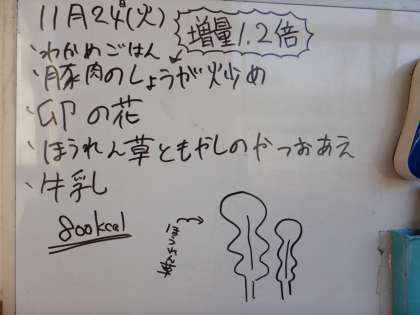 11月24日(火)
増量1.2倍
・わかめごはん
・豚肉のしょうが炒め
・卯の花
・ほうれん草ともやしのかつおあえ
・牛乳
800kcal